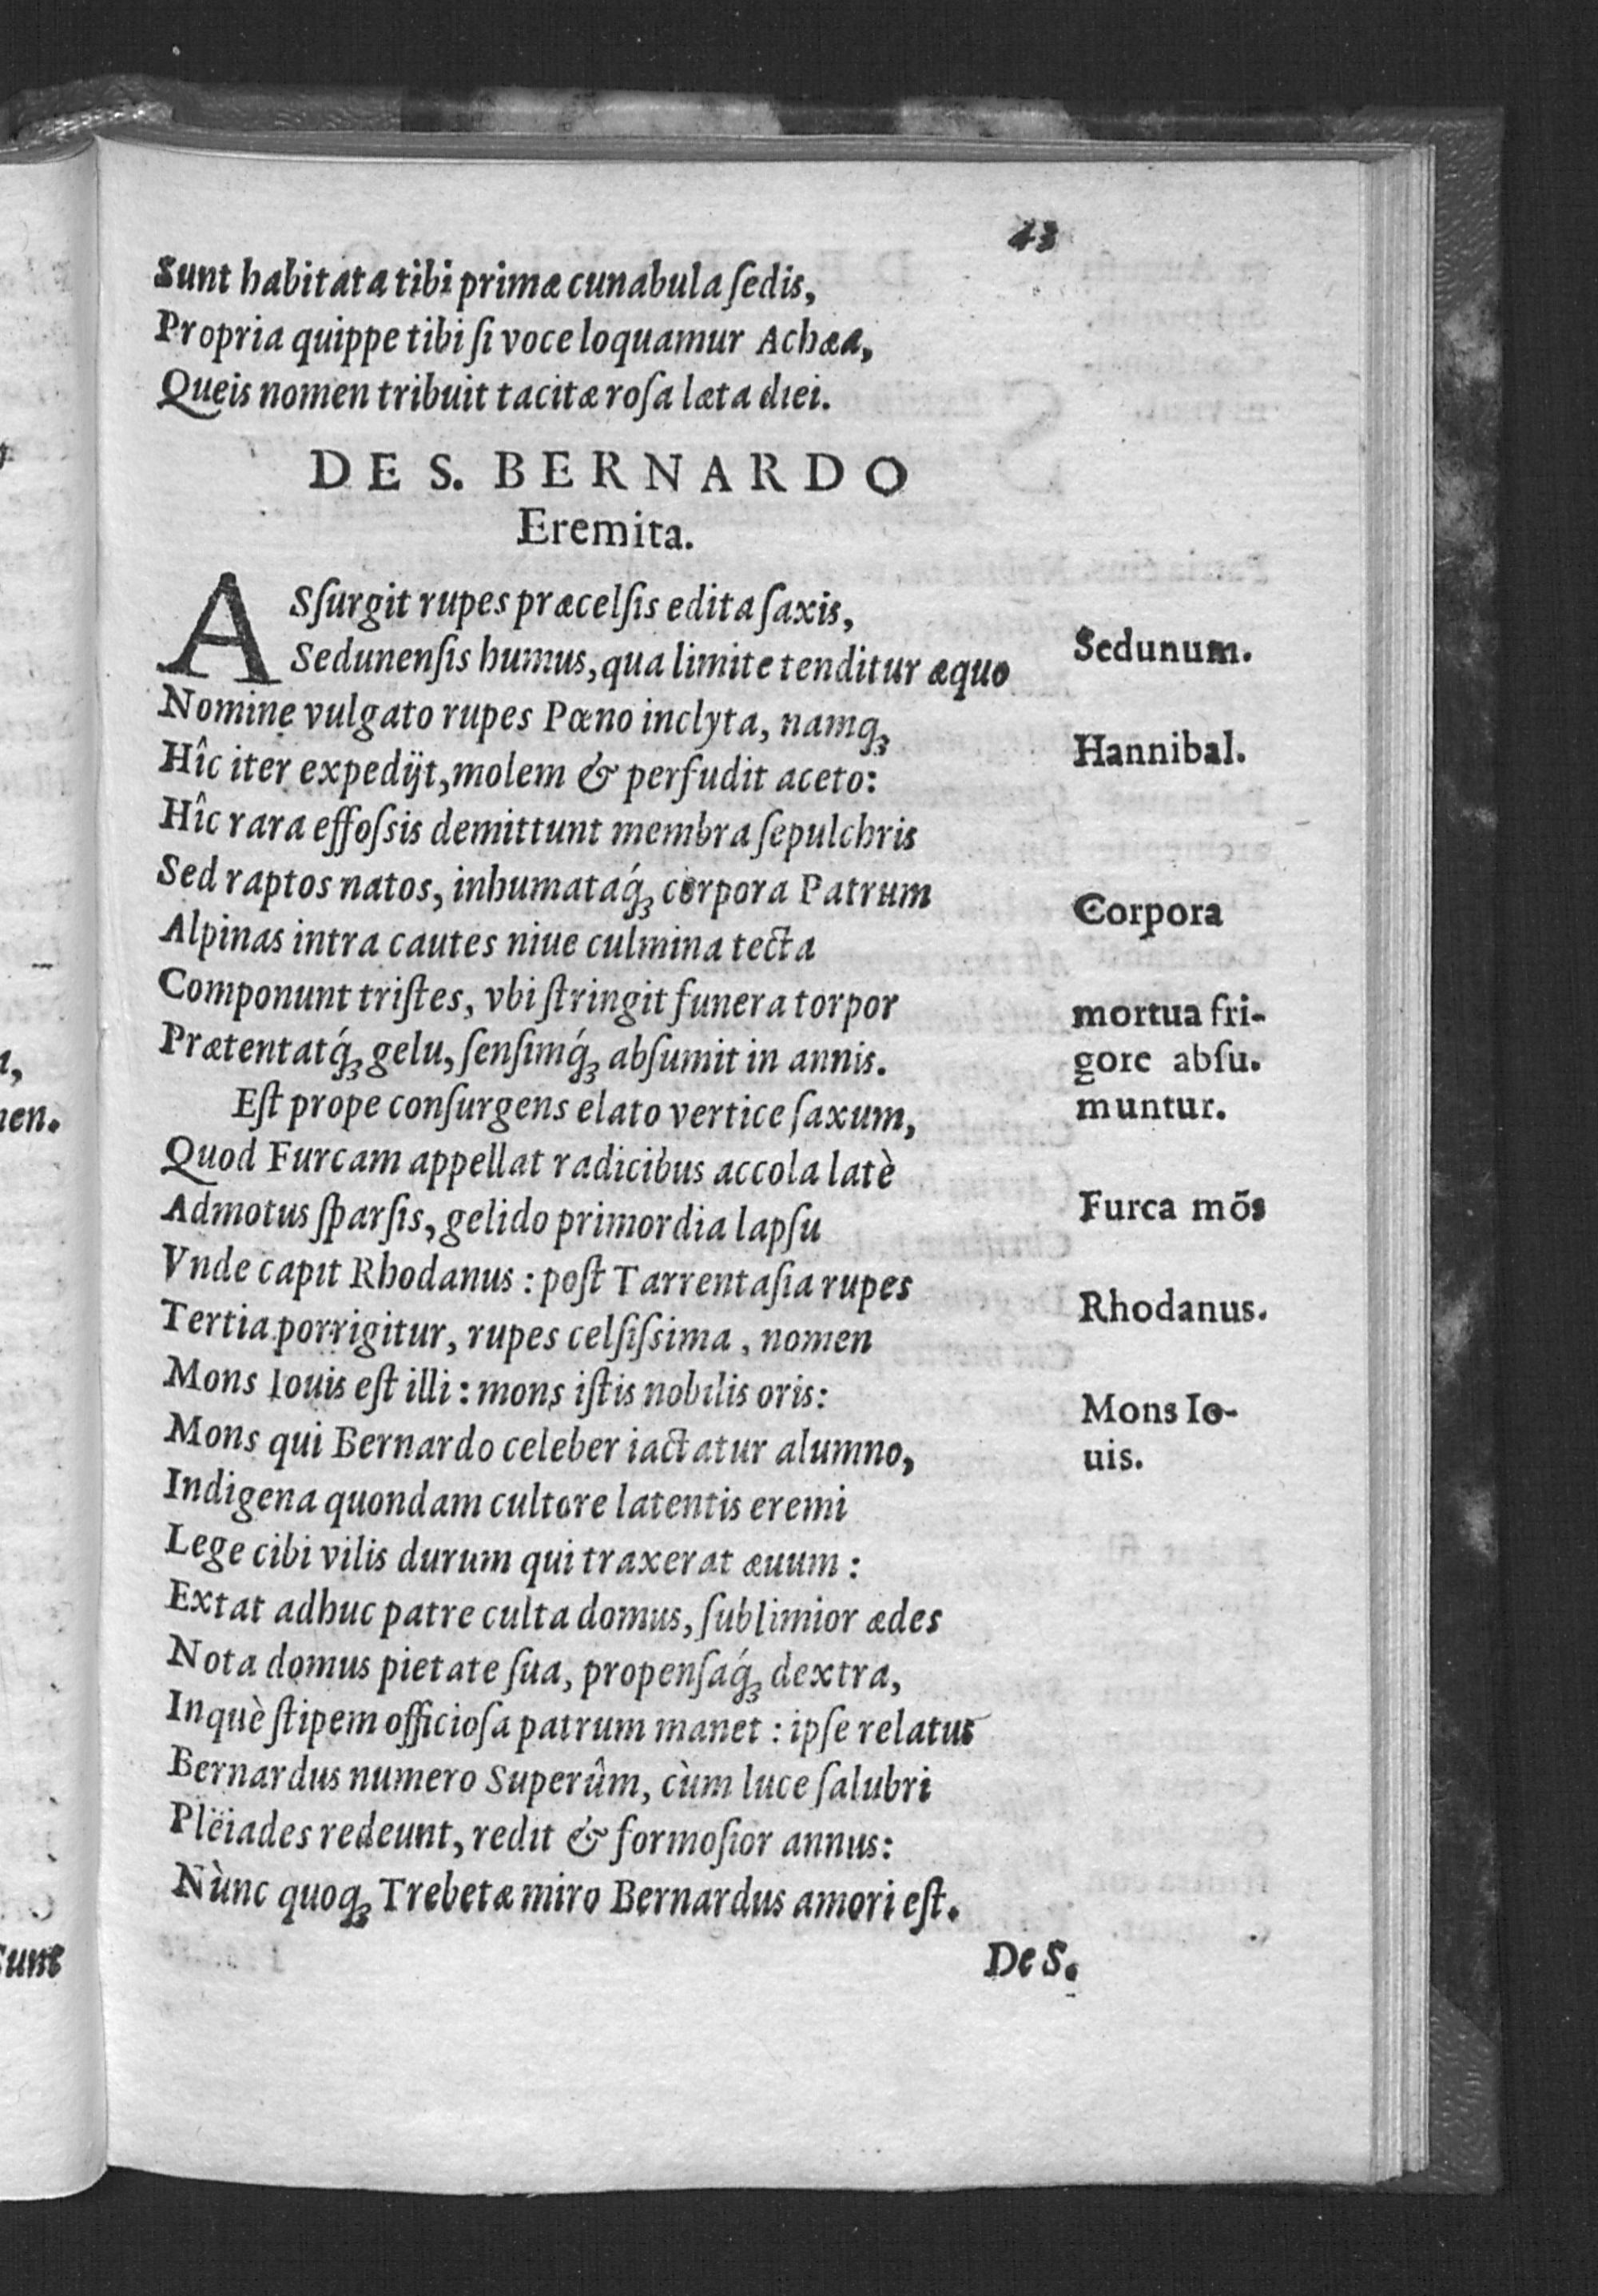 43
Sunt habitata tibi primæ cunabula ſedis,
Propria quippe tibi ſi voce loquamur Achæa,
Queis nomen tribuit tacitæ roſa læta diei.
DE S. BERNARDO
Eremita.
ASſurgit rupes præcelſis edita ſaxis,
Sedunenſis humus, qua limite tenditur æquo
Sedunum.
Nomine vulgato rupes Pœno inclyta, namq́ꝫ
Hîc iter expedijt, molem & perfudit aceto:
Hannibal.
Hîc rara effoſsis demittunt membra ſepulchris
Sed raptos natos, inhumataq́ꝫ corpora Patrum
Corpora
Alpinas intra cautes niue culmina tecta
Componunt triſtes, vbi ſtringit funera torpor
mortua fri-
Prætentatq́ꝫ gelu, ſenſimq́ꝫ abſumit in annis.
gore abſu.
Eſt prope conſurgens elato vertice ſaxum,
muntur.
Quod Furcam appellat radicibus accola latè
Admotus ſparſis, gelido primordia lapſu
Furca mõs
Vnde capit Rhodanus: poſt Tarrentaſia rupes
Rhodanus.
Tertia porrigitur, rupes celſiſsima, nomen
Mons Iouis eſt illi: mons iſtis nobilis oris:
Mons Io-
Mons qui Bernardo celeber iactatur alumno,
uis.
Indigena quondam cultore latentis eremi
Lege cibi vilis durum qui traxerat æuum:
Extat adhuc patre culta domus, ſublimior ædes
Nota domus pietate ſua, propenſaq́ꝫ dextra,
Inquè ſtipem officioſa patrum manet: ipſe relatus
Bernardus numero Superûm, cùm luce ſalubri
Plëiades redeunt, redit & formoſior annus:
Nùnc quoqꝫ Trebetæ miro Bernardus amori eſt.
De S.